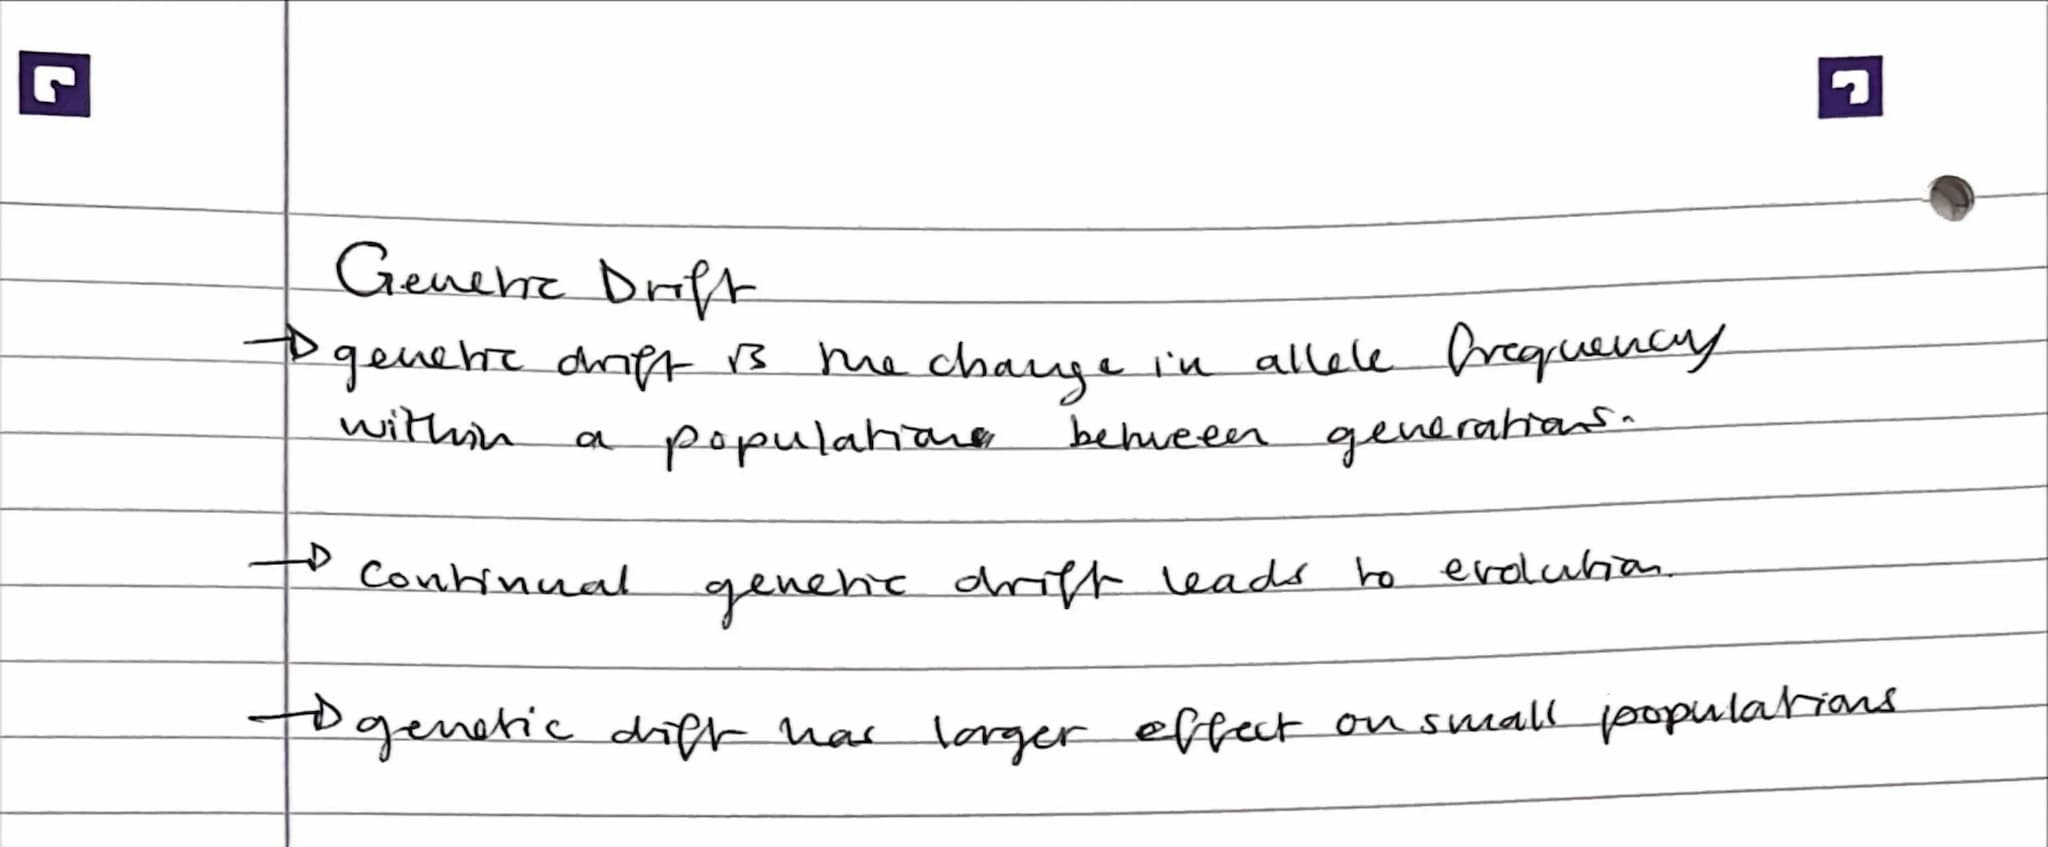 Genetic Drift
→ genetic drift is the change in allele frequency
within a population between generations.
→ continual genetic drift leads to evolution.
→ genetic drift has larger effect on small populations